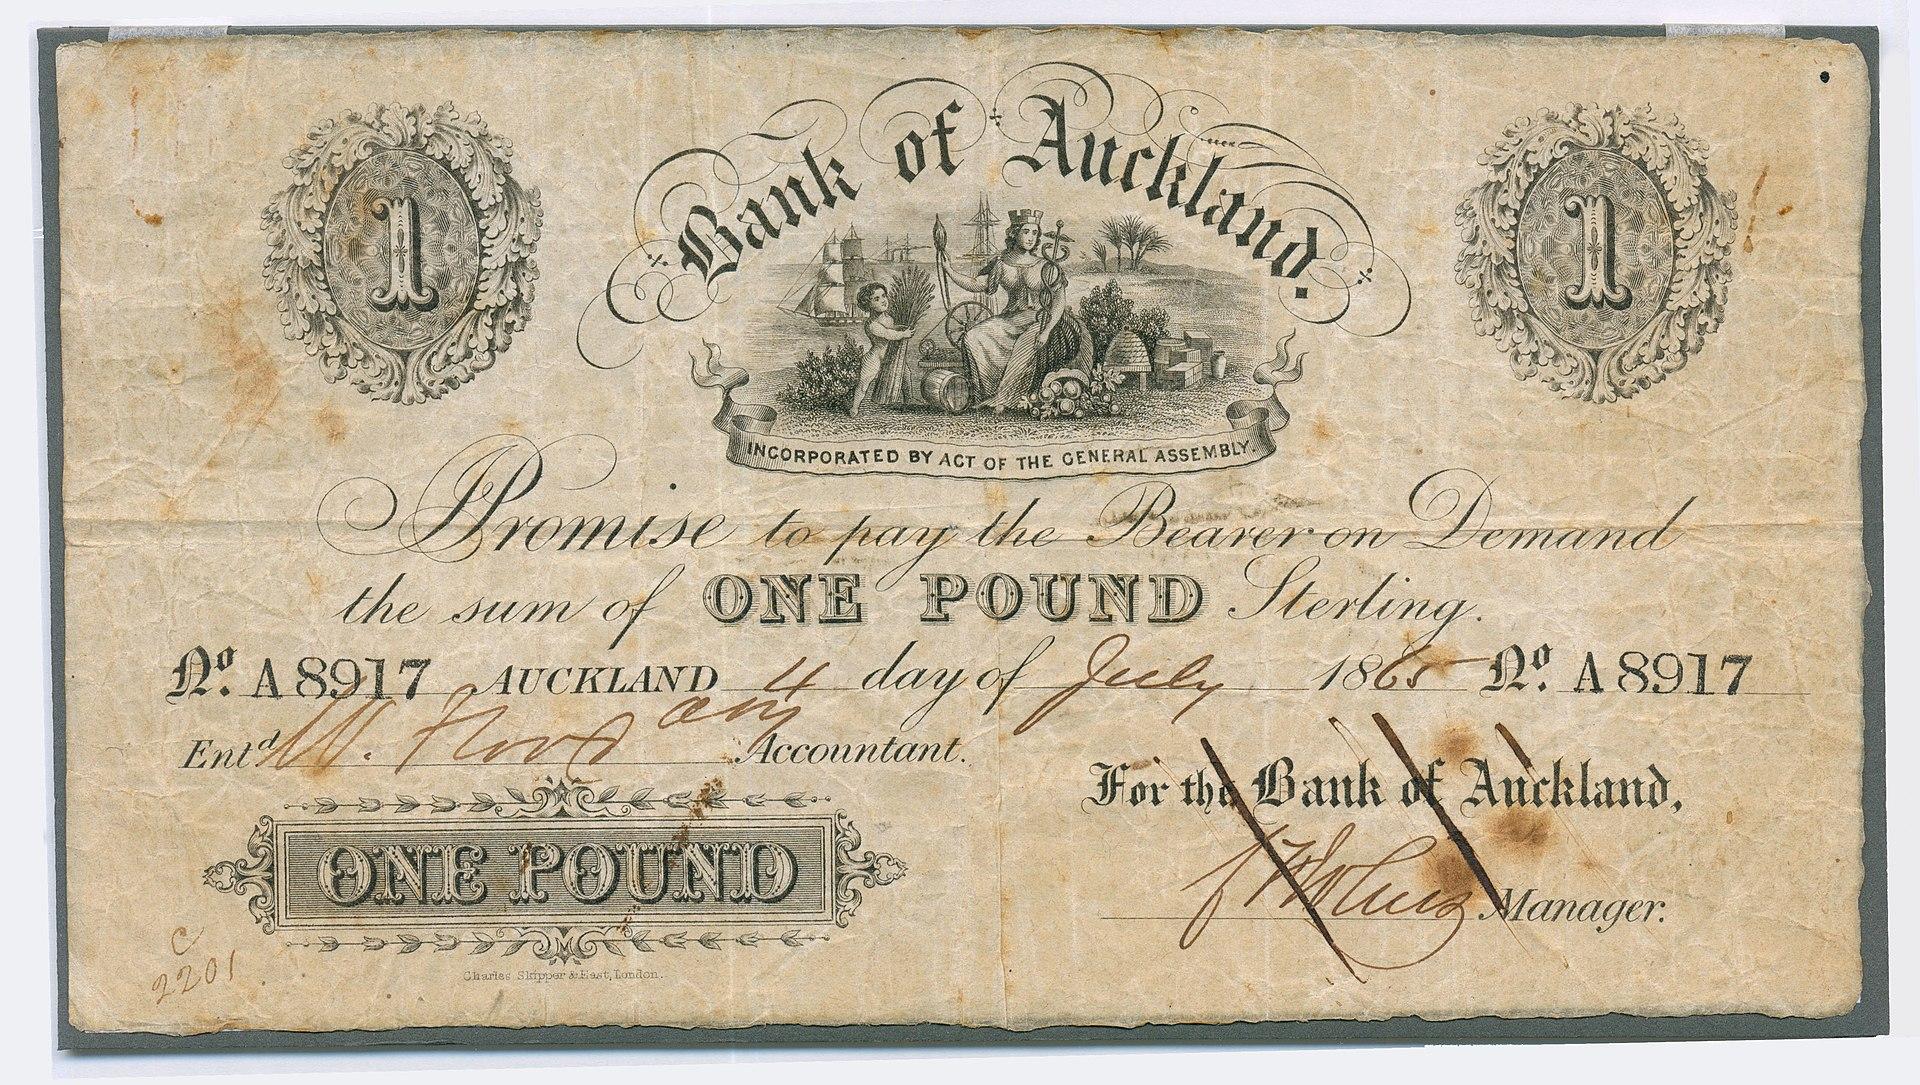 Bank of Auckland.
1 1
INCORPORATED BY ACT OF THE GENERAL ASSEMBLY.
Promise to pay the Bearer on Demand
the sum of ONE POUND Sterling.
No. A 8917 AUCKLAND 4 day of July 1865 No. A 8917
Entd W. Accountant.
For the Bank of Auckland,
Manager.
ONE POUND
Charles Skipper & East, London.
C
2201